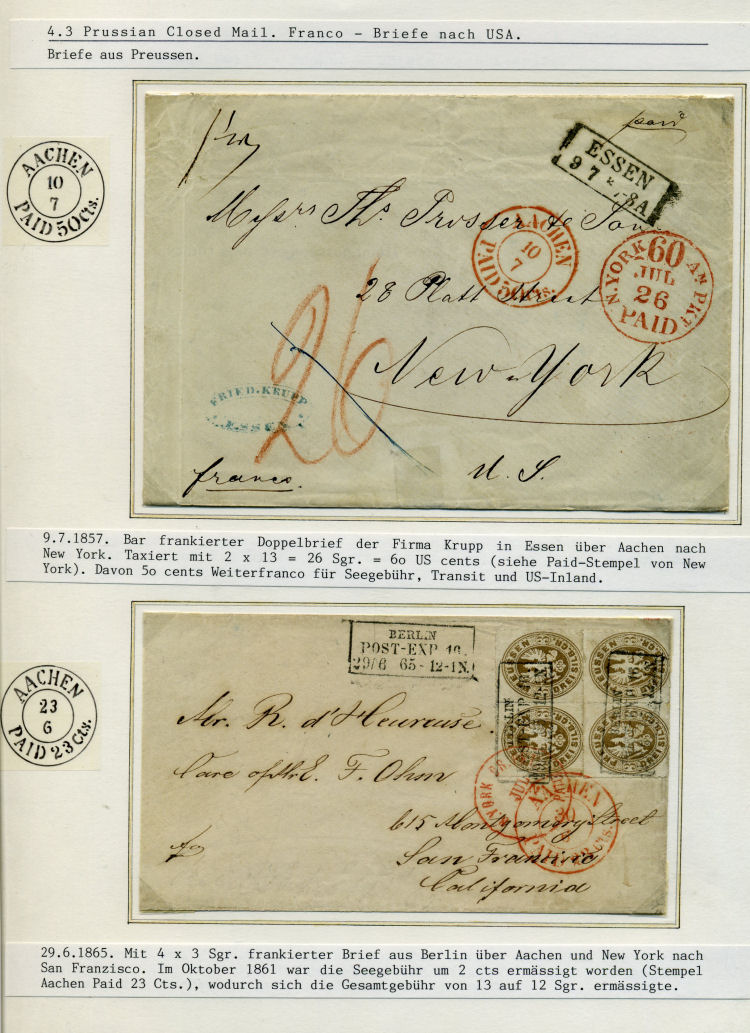 4.3 Prussian Closed Mail. Franco - Briefe nach USA.
Briefe aus Preussen.
AACHEN
10
7
PAID 50Cts.
paid
ESSEN
9 7 -8A
Messrs Ths Prosser & Son
AACHEN
10
7
PAID 50Cts.
N.YORK 60 AN PKT.
JUL
26
PAID
28 Platt Street
26
New York
FRIED. KRUPP
ESSEN
franco.
U. S.
9.7.1857. Bar frankierter Doppelbrief der Firma Krupp in Essen über Aachen nach
New York. Taxiert mit 2 x 13 = 26 Sgr. = 6o US cents (siehe Paid-Stempel von New
York). Davon 5o cents Weiterfranco für Seegebühr, Transit und US-Inland.
AACHEN
23
6
PAID 23 Cts.
BERLIN
POST-EXP.
29/6 65 12-1N.
PREUSSEN
PREUSSEN
PREUSSEN
PREUSSEN
BERLIN
POST-EXP
12-1N.
Mr. R. d'Heureuse
Care of Mr E. F. Ohm
YORK
JUL
AACHEN
30
PAID
Cts.
615 Montgomery Street
San Francisco
California
29.6.1865. Mit 4 x 3 Sgr. frankierter Brief aus Berlin über Aachen und New York nach
San Franzisco. Im Oktober 1861 war die Seegebühr um 2 cts ermässigt worden (Stempel
Aachen Paid 23 Cts.), wodurch sich die Gesamtgebühr von 13 auf 12 Sgr. ermässigte.